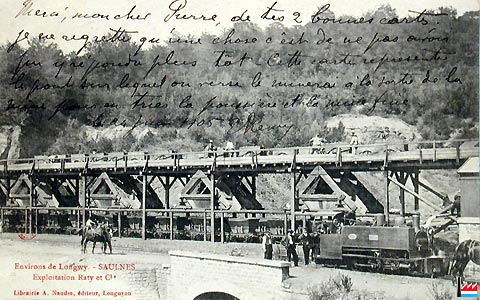 Merci, mon cher Pierre, de tes 2 bonnes cartes
je ne regrette qu'une chose c'est de ne pas avoir
pu y répondre plus tôt. Cette carte représente
le pont sur lequel on verse le minerai à la sortie de la
mine pour en trier la poussière et la mine fine
1905
Environs de Longwy. - SAULNES
Exploitation Raty et Cie
Librairie A. Naudin, éditeur, Longuyon